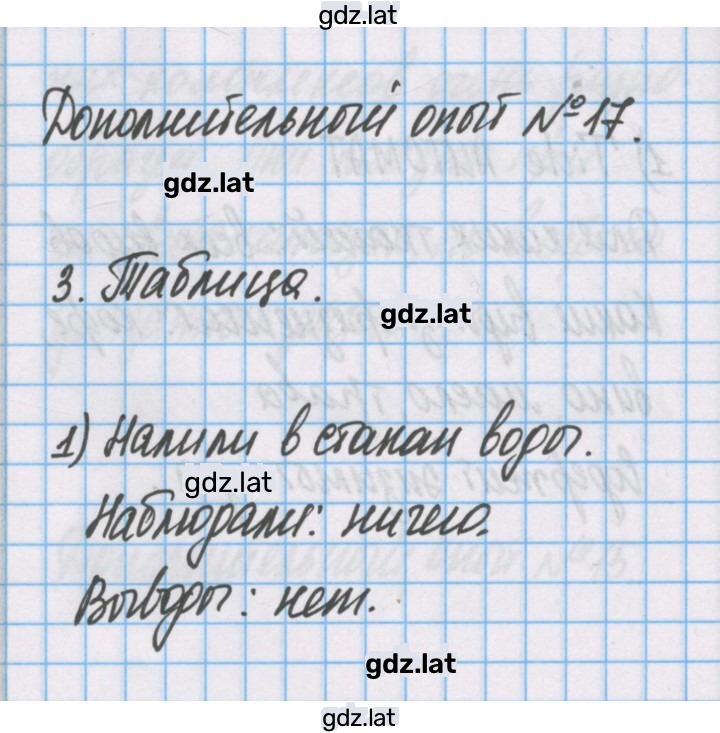 gdz.lat
Дополнительный опыт №17.
gdz.lat
3. Таблица.
gdz.lat
1) Налили в стакан воды.
gdz.lat
Наблюдали: ничего.
Выводы: нет.
gdz.lat
gdz.lat